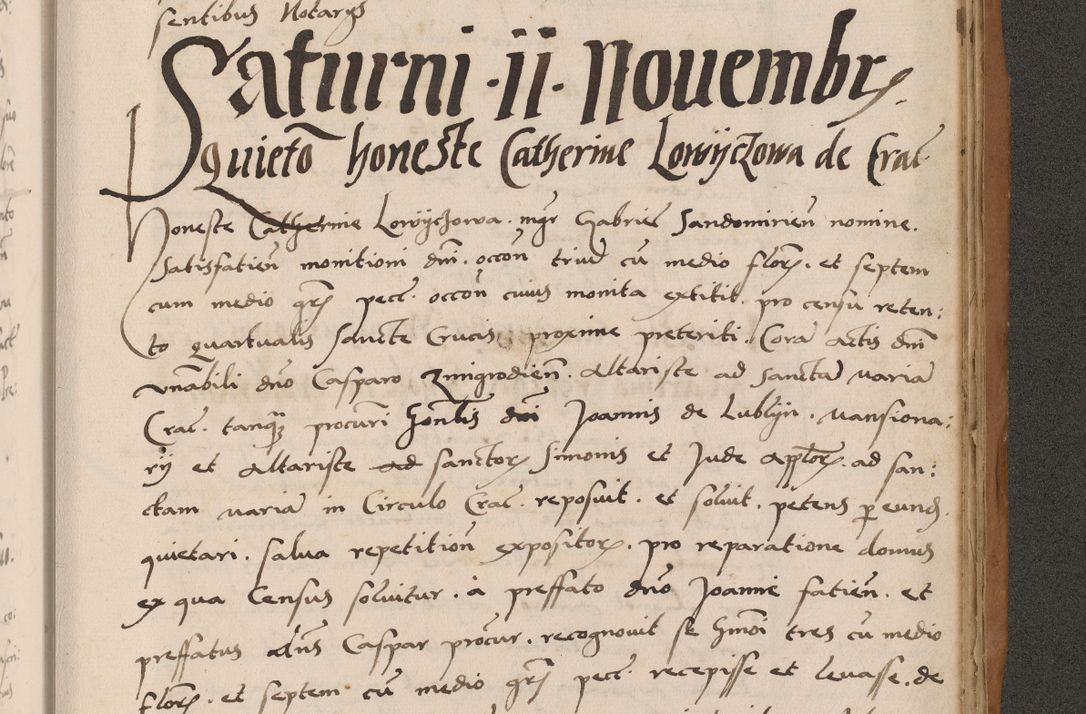 sentibus Notarys
Saturni · ii · Nouembr
Quieto honeste Catherine Lowyczowa de Crac
Honeste Catherine Lowyczowa . mgr Gabriel Sandomirien nomine .
Satisfatien monitioni dni . occon triu cu medio flor . et septem
cum medio gr pecc . occon cuius monita extitit . pro censu reten:
to quartualis Sancte Crucis proxime preteriti . Cora actis dni
vnabili dno Casparo Zmigrodien . Altariste ad Sancta Maria
Crac . tanq procuri honlis dni Joannis de Lublyn . Mansiona:
rij et Altariste ad Sanctor Simonis et Jude Applor . ad san:
ctam Maria in Circulo Crac . reposuit . et soluit . petens p eund .
quietari . salua repetition expositor . pro reparatione domus
ex qua Census soluitur . a preffato dno Joanne fatien . et
preffatus dns Caspar procur . recognouit se hmoi tres cu medio
flor . et septem cu medio gr pecc . recepisse et leuasse . de